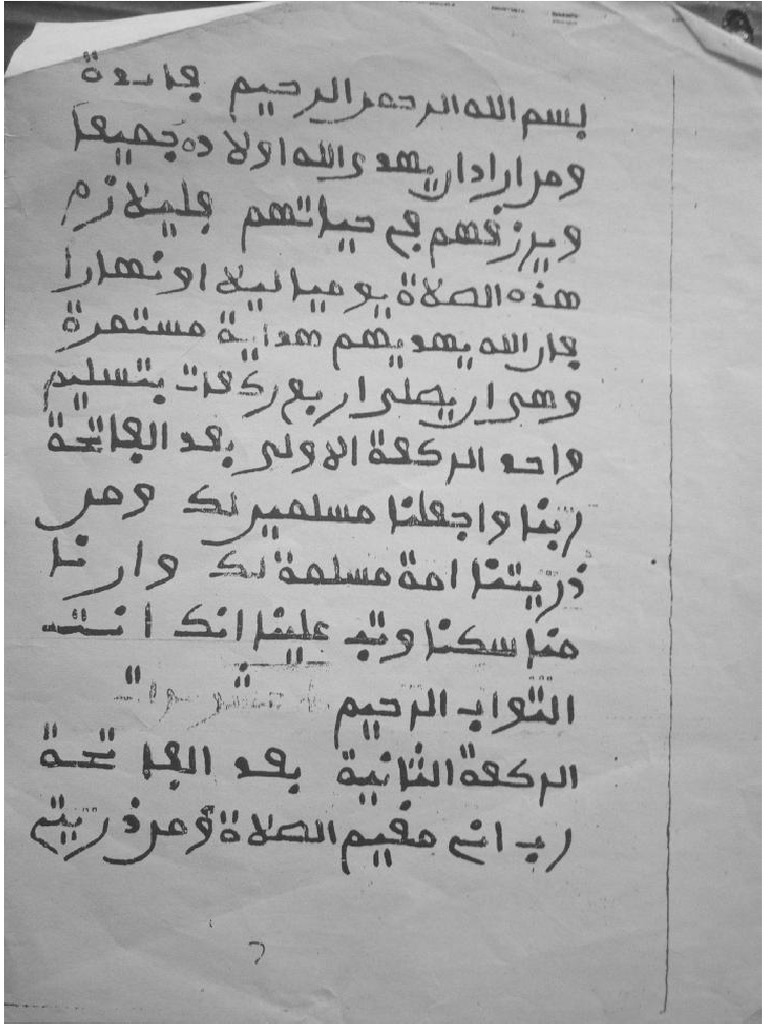 بسم الله الرحمن الرحيم فائدة
ومن اراد ان يهدي الله اولاده جميعا
ويرزقهم في حياتهم فليلازم
هذه الصلاة يوميا ليلا او نهارا
فان الله يهديهم هداية مستمرة
وهي ان يصلي اربع ركعات بتسليم
واحد الركعة الاولى بعد الفاتحة
ربنا واجعلنا مسلمين لك ومن
ذريتنا امة مسلمة لك وارنا
مناسكنا وتب علينا انك انت
التواب الرحيم
الركعة الثانية بعد الفاتحة
رب اني مقيم الصلاة ومن ذريتي